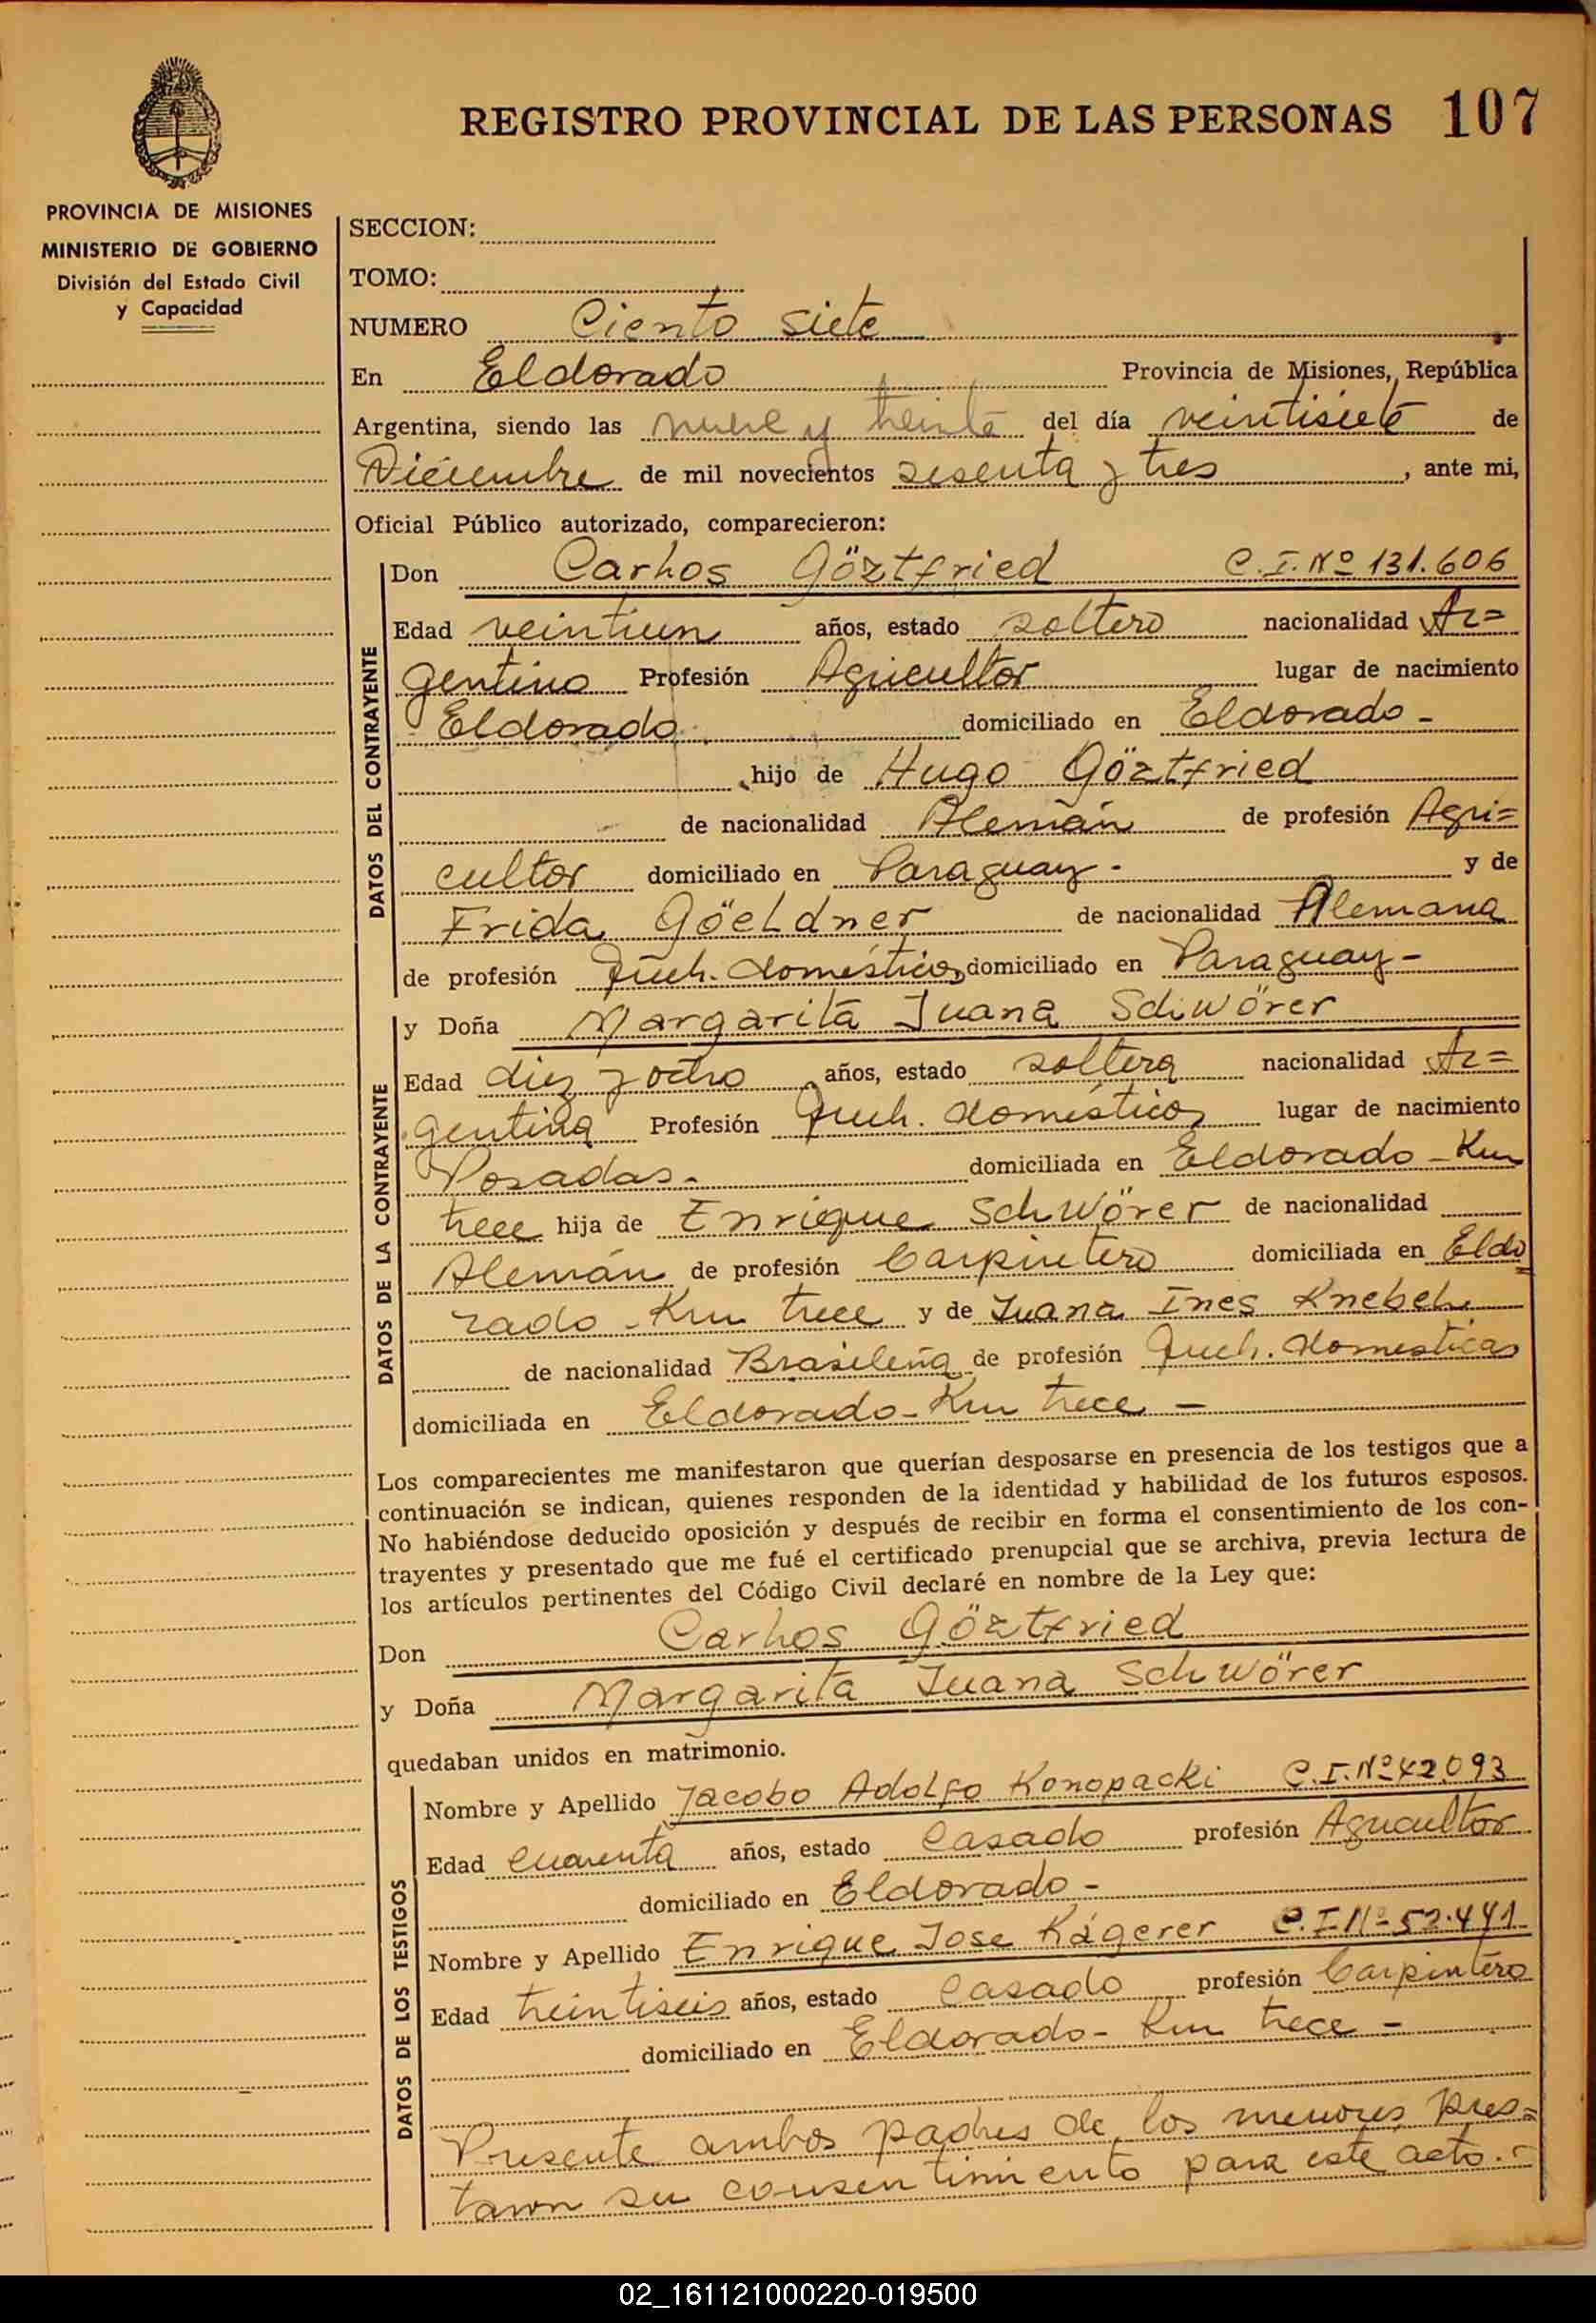 REGISTRO PROVINCIAL DE LAS PERSONAS 107
PROVINCIA DE MISIONES
MINISTERIO DE GOBIERNO
División del Estado Civil
y Capacidad
SECCION:
TOMO:
NUMERO Ciento siete
En Eldorado Provincia de Misiones, República
Argentina, siendo las nueve y treinta del día veintisiete de
Diciembre de mil novecientos sesenta y tres, ante mi,
Oficial Público autorizado, comparecieron:
DATOS DEL CONTRAYENTE
Don Carlos Göztfried C.I.Nº 131.606
Edad veintiun años, estado soltero nacionalidad Ar=
gentino Profesión Agricultor lugar de nacimiento
Eldorado domiciliado en Eldorado -
hijo de Hugo Göztfried
de nacionalidad Alemán de profesión Agri=
cultor domiciliado en Paraguay - y de
Frida Göeldner de nacionalidad Alemana
de profesión Queh. domésticos domiciliado en Paraguay -
DATOS DE LA CONTRAYENTE
y Doña Margarita Juana Schwörer
Edad diez y ocho años, estado soltera nacionalidad Ar=
gentina Profesión Queh. domésticos lugar de nacimiento
Posadas - domiciliada en Eldorado - Km
trece hija de Enrique Schwörer de nacionalidad
Alemán de profesión Carpintero domiciliada en Eldo
rado - Km trece y de Juana Ines Knebel
de nacionalidad Brasileña de profesión Queh. domesticos
domiciliada en Eldorado - Km trece -
Los comparecientes me manifestaron que querían desposarse en presencia de los testigos que a
continuación se indican, quienes responden de la identidad y habilidad de los futuros esposos.
No habiéndose deducido oposición y después de recibir en forma el consentimiento de los con-
trayentes y presentado que me fué el certificado prenupcial que se archiva, previa lectura de
los artículos pertinentes del Código Civil declaré en nombre de la Ley que:
Don Carlos Göztfried
y Doña Margarita Juana Schwörer
quedaban unidos en matrimonio.
DATOS DE LOS TESTIGOS
Nombre y Apellido Jacobo Adolfo Konopacki C.I.Nº 42.093
Edad cuarenta años, estado casado profesión Agricultor
domiciliado en Eldorado -
Nombre y Apellido Enrique Jose Kägerer C.I Nº 52.441
Edad treintiseis años, estado casado profesión Carpintero
domiciliado en Eldorado - Km trece -
Presente ambos padres de los menores pres=
taron su consentimiento para este acto. -
02_161121000220-019500